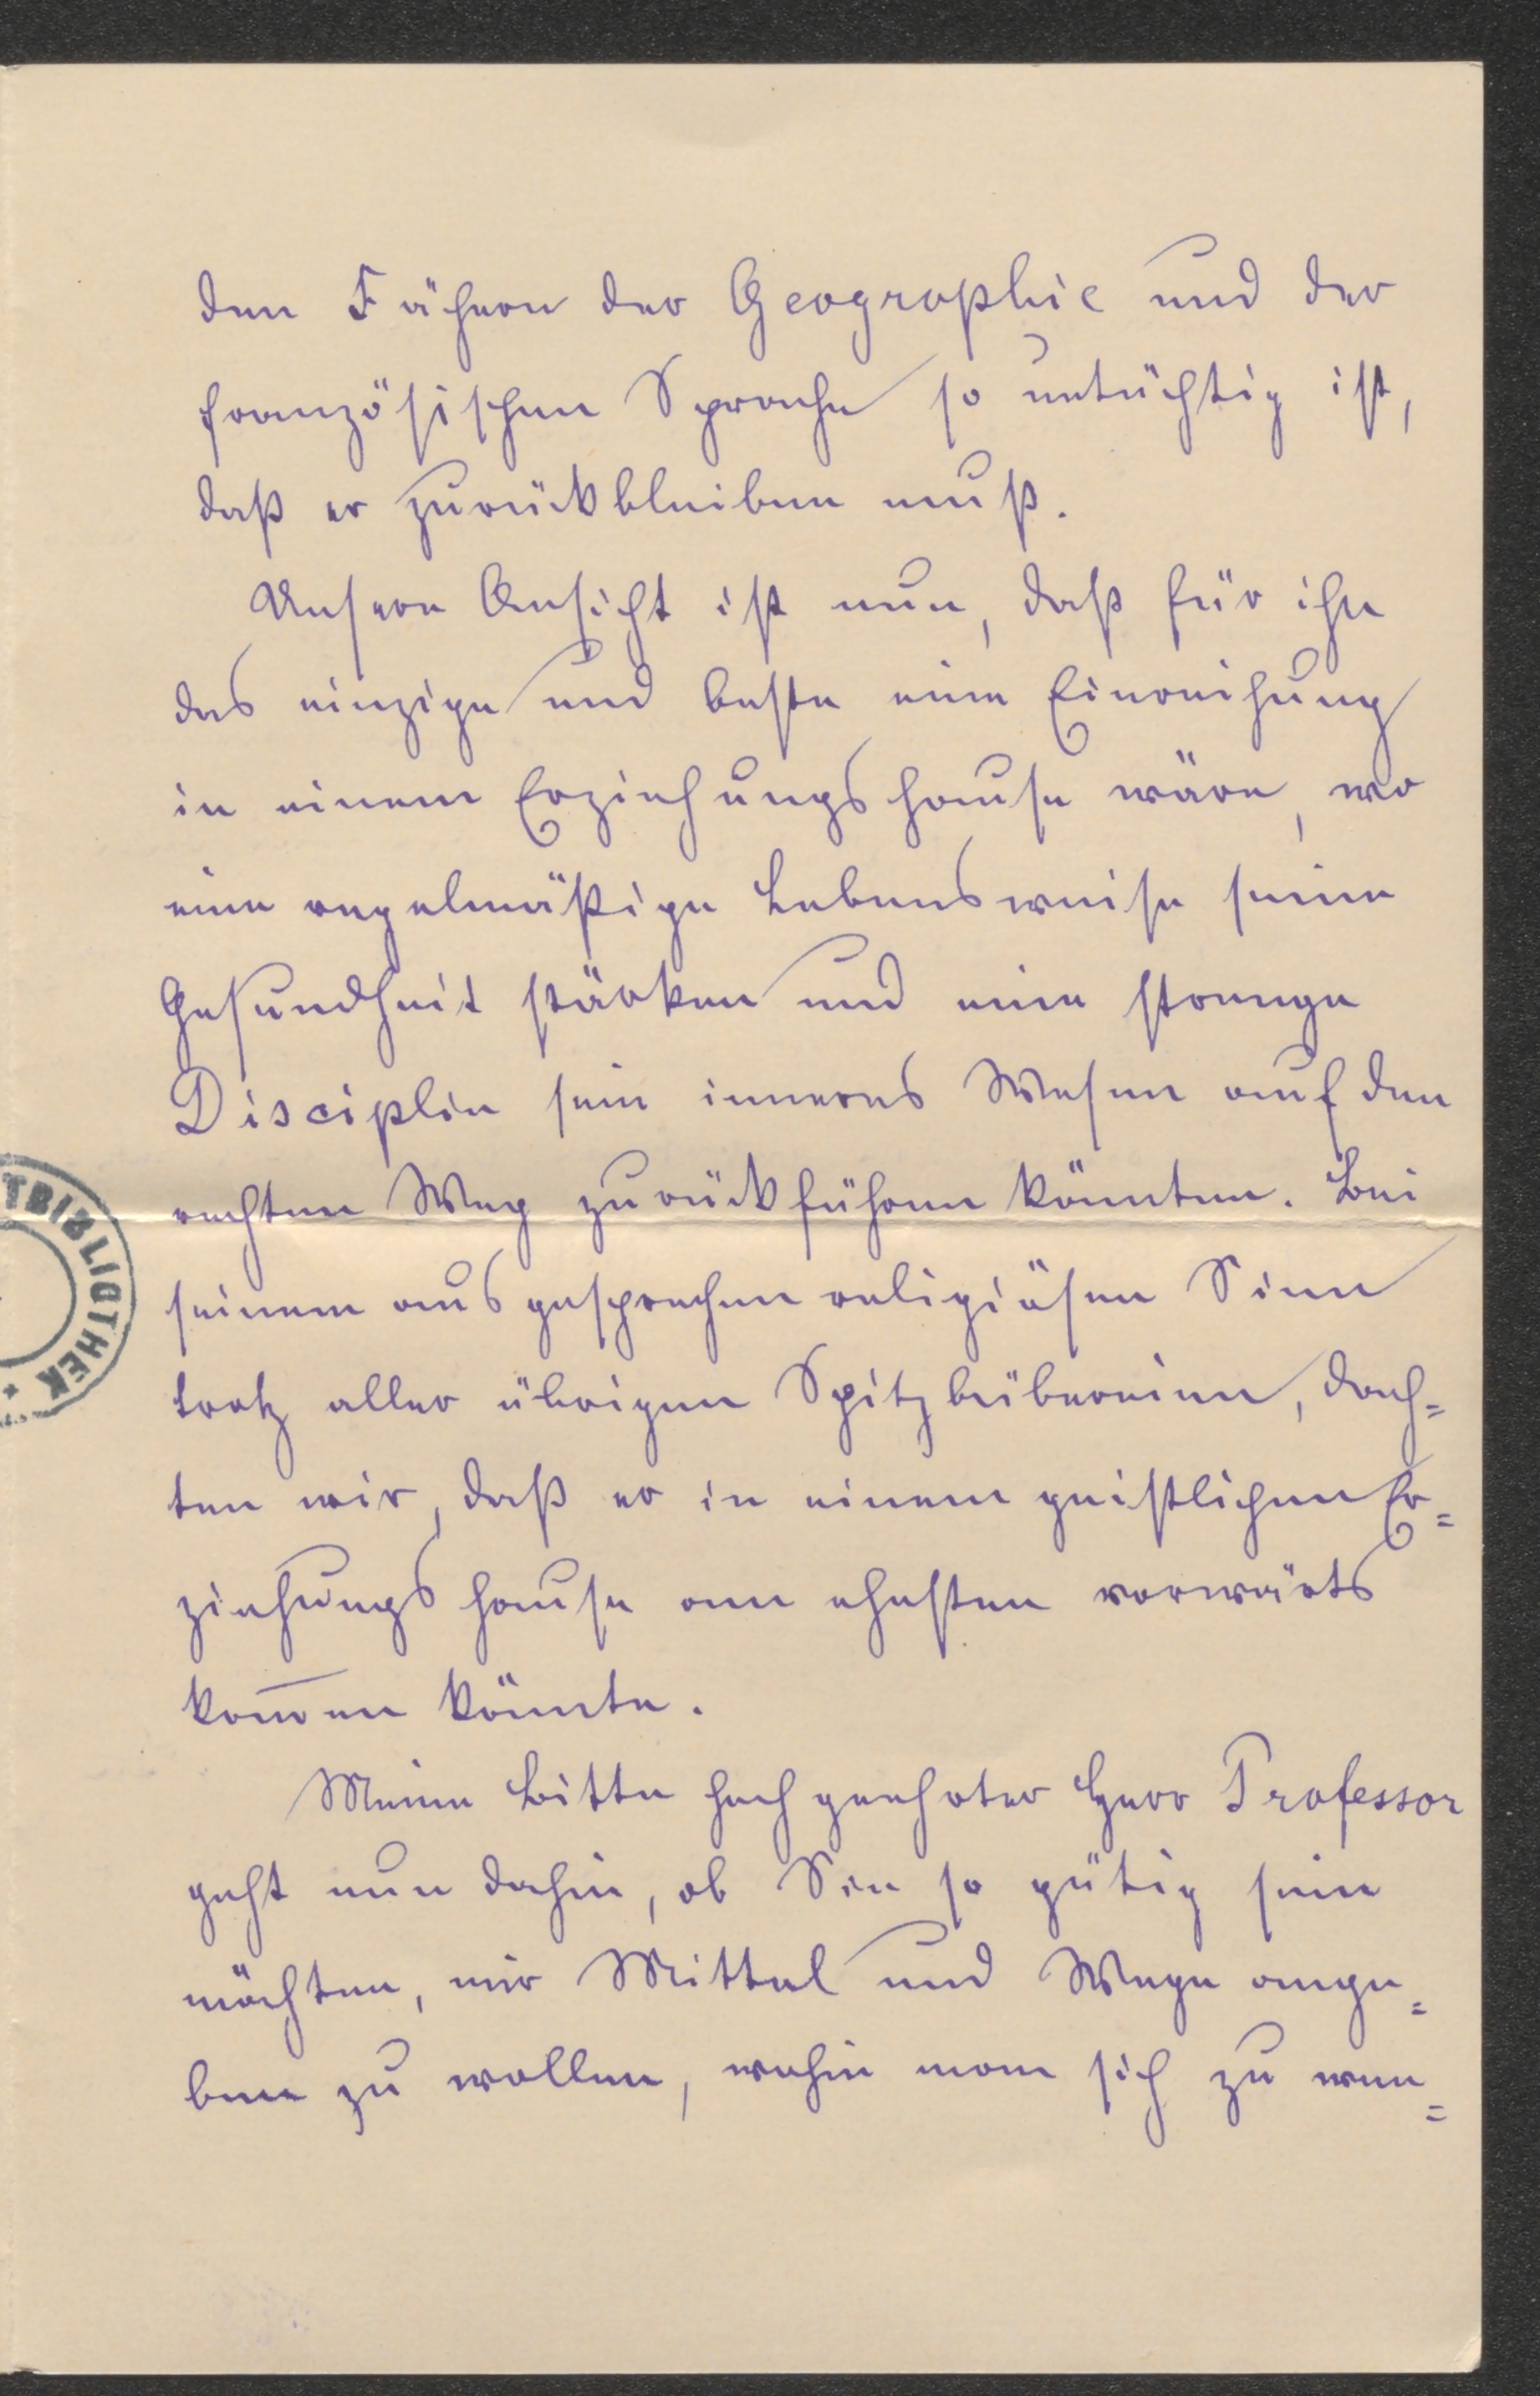 den Fächern der Geographie und der
französischen Sprache so untüchtig ist,
daß er zurückbleiben muß.
Unsere Ansicht ist nun, daß für ihn
das einzige und beste eine Einreihung
in einem Erziehungshause wäre, wo
eine regelmäßige Lebensweise seine
Gesundheit stärken und eine strenge
Disciplin sein inneres Wesen auf den
rechten Weg zurückführen könnten. Bei
seinem ausgesprochen religiösen Sinn
trotz aller übrigen Spitzbübereien, dach=
ten wir, daß er in einem geistlichen Er=
ziehungshause am ehesten vorwärts
kom̄en könnte.
Meine Bitte hochgeehrter Herr Professor
geht nun dahin, ob Sie so gütig sein
möchten, mir Mittel und Wege ange=
ben zu wollen, wohin man sich zu wen=
TBIBLIOTHEK *